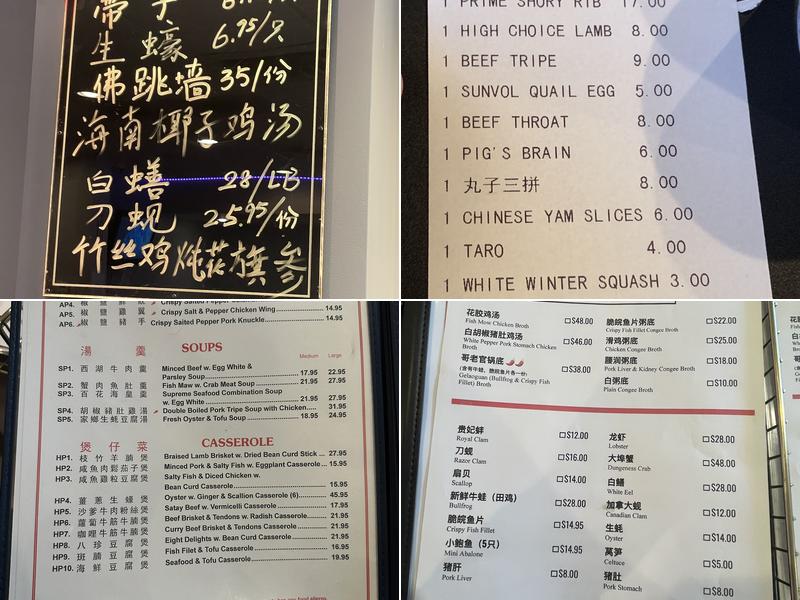 带子
生蠔 6.95/只
佛跳墙 35/份
海南椰子鸡汤
白鳝 28/LB
刀蚬 25.95/份
竹丝鸡炖花旗参
1 PRIME SHORT RIB 17.00
1 HIGH CHOICE LAMB 8.00
1 BEEF TRIPE 9.00
1 SUNVOL QUAIL EGG 5.00
1 BEEF THROAT 8.00
1 PIG'S BRAIN 6.00
1 丸子三拼 8.00
1 CHINESE YAM SLICES 6.00
1 TARO 4.00
1 WHITE WINTER SQUASH 3.00
AP5. 椒鹽雞翼 Crispy Salt & Pepper Chicken Wing 14.95
AP6. 椒鹽豬手 Crispy Salted Pepper Pork Knuckle 14.95
湯羹 SOUPS
Medium Large
SP1. 西湖牛肉羹 Minced Beef w. Egg White &
Parsley Soup 17.95 22.95
SP2. 蟹肉魚肚羹 Fish Maw w. Crab Meat Soup 21.95 27.95
SP3. 百花海皇羹 Supreme Seafood Combination Soup
w. Egg White 21.95 27.95
SP4. 胡椒豬肚雞湯 Double Boiled Pork Tripe Soup with Chicken 31.95
SP5. 家鄉生蠔豆腐湯 Fresh Oyster & Tofu Soup 18.95 24.95
煲仔菜 CASSEROLE
HP1. 枝竹羊腩煲 Braised Lamb Brisket w. Dried Bean Curd Stick ... 27.95
HP2. 咸魚肉鬆茄子煲 Minced Pork & Salty Fish w. Eggplant Casserole ... 15.95
HP3. 咸魚雞粒豆腐煲 Salty Fish & Diced Chicken w.
Bean Curd Casserole 15.95
HP4. 薑蔥生蠔煲 Oyster w. Ginger & Scallion Casserole (6) 45.95
HP5. 沙爹牛肉粉絲煲 Satay Beef w. Vermicelli Casserole 17.95
HP6. 蘿蔔牛筋牛腩煲 Beef Brisket & Tendons w. Radish Casserole 21.95
HP7. 咖哩牛筋牛腩煲 Curry Beef Brisket & Tendons Casserole 21.95
HP8. 八珍豆腐煲 Eight Delights w. Bean Curd Casserole 21.95
HP9. 斑腩豆腐煲 Fish Filet & Tofu Casserole 16.95
HP10. 海鮮豆腐煲 Seafood & Tofu Casserole 19.95
花胶鸡汤 $48.00
Fish Mow Chicken Broth
白胡椒猪肚鸡汤 $46.00
White Pepper Pork Stomach Chicken
Broth
哥老官锅底 $38.00
(含有牛蛙、脆皖鱼片各一份)
Gelaoguan (Bullfrog & Crispy Fish
Fillet) Broth
脆皖鱼片粥底 $22.00
Crispy Fish Fillet Congee Broth
滑鸡粥底 $25.00
Chicken Congee Broth
腰润粥底 $18.00
Pork Liver & Kidney Congee Broth
白粥底 $10.00
Plain Congee Broth
贵妃蚌 $12.00
Royal Clam
刀蚬 $16.00
Razor Clam
扇贝 $14.00
Scallop
新鲜牛蛙（田鸡） $28.00
Bullfrog
脆皖鱼片 $14.95
Crispy Fish Fillet
小鲍鱼（5只） $14.95
Mini Abalone
猪肝 $8.00
Pork Liver
龙虾 $28.00
Lobster
大埠蟹 $48.00
Dungeness Crab
白鳝 $28.00
White Eel
加拿大蚬 $12.00
Canadian Clam
生蚝 $14.00
Oyster
莴笋 $5.00
Celtuce
猪肚 $8.00
Pork Stomach